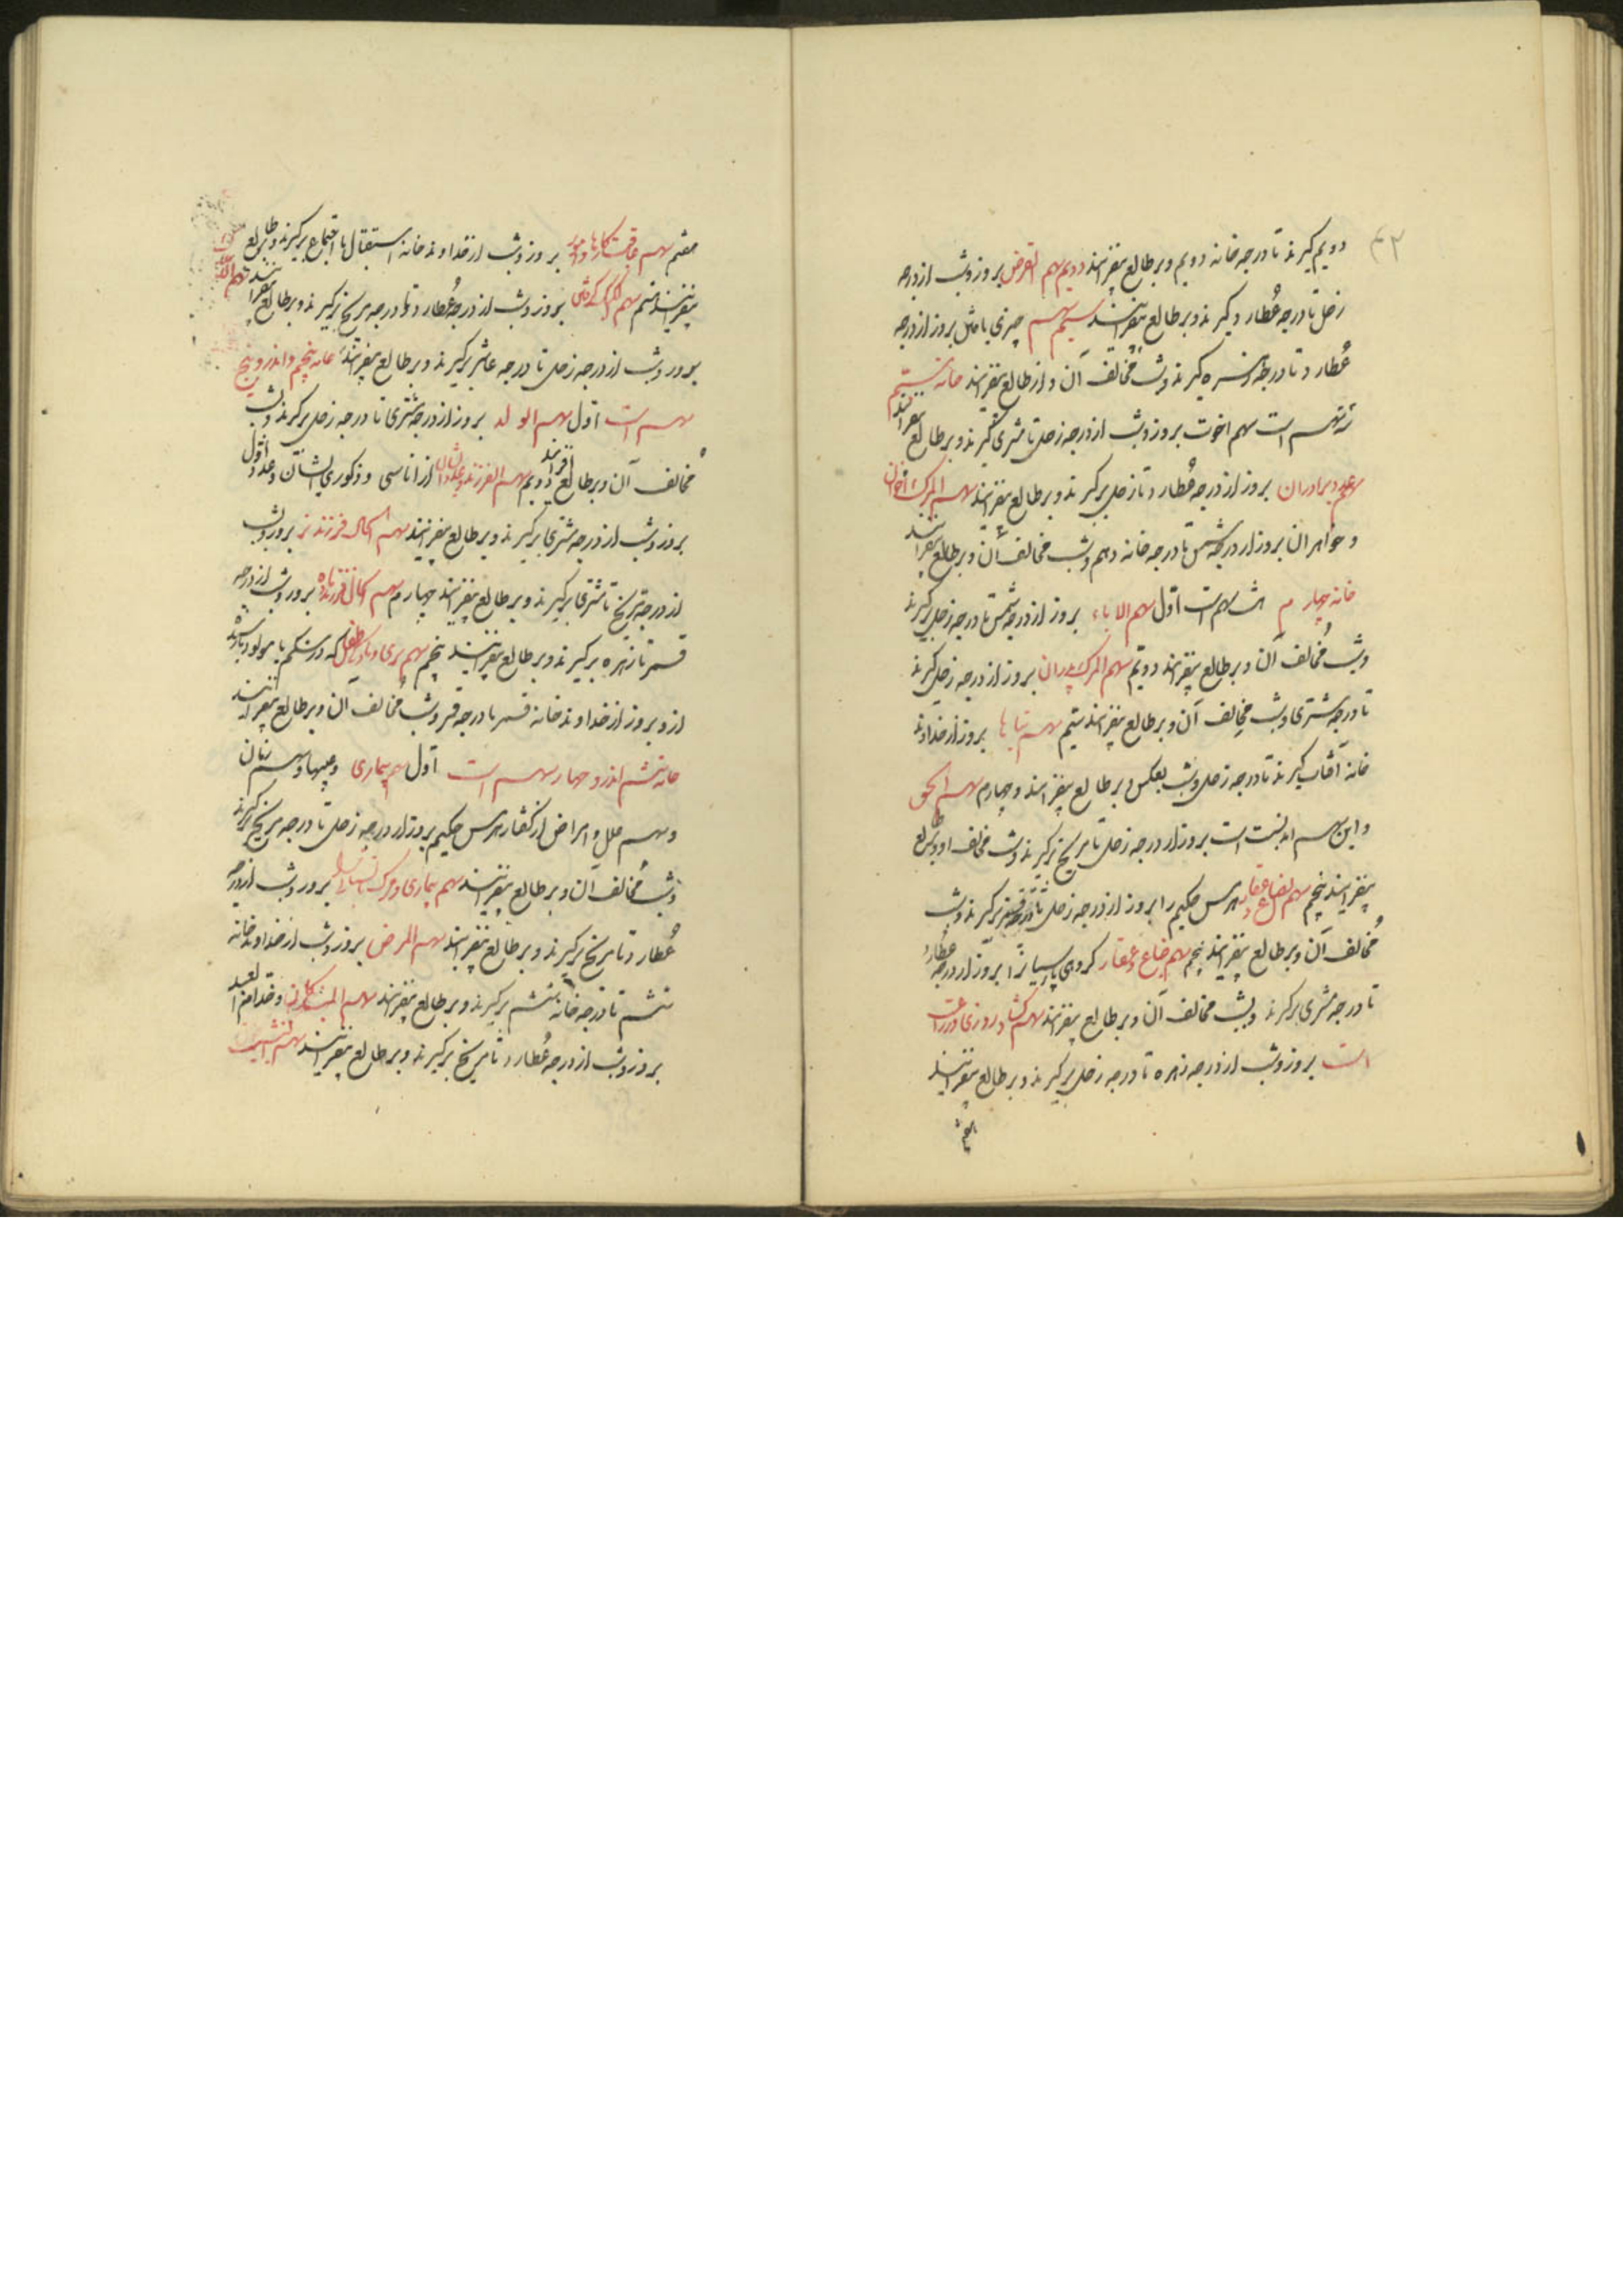 ۴۳
دویم گیرند تا درجه خانه دویم و بر طالع بیفزایند دویم سهم القرض بروز و شب از درجه
زحل تا درجه عطارد گیرند و بر طالع بیفزایند سیم سهم بروز از درجه
عطارد تا درجه زهره گیرند و شب مخالف آن و از طالع بیفزایند خانه سیم
سهم است سهم اخوت بروز و شب از درجه زحل تا مشتری گیرند و بر طالع بیفزایند
سهم عدد برادران بروز از درجه عطارد تا زحل برگیرند و بر طالع بیفزایند سهم المرگ اخوان
و خواهران بروز از درجه شمس تا درجه خانه دهم و شب مخالف آن و بر طالع بیفزایند
خانه چهارم هشت سهم است اول سهم الاباء بروز از درجه شمس تا درجه زحل برگیرند
و شب مخالف آن و بر طالع بیفزایند دویم سهم المرگ پدران بروز از درجه زحل گیرند
تا درجه مشتری و شب مخالف آن و بر طالع بیفزایند سیم سهم بروز از خداوند
خانه آفتاب گیرند تا درجه زحل و شب بعکس و بر طالع بیفزایند و چهارم سهم الحق
و این سهم است بروز از درجه زحل تا مریخ برگیرند و شب مخالف او و بر طالع
بیفزایند پنجم سهم ضیاع عقار هرمس حکیم را بروز از درجه زحل تا درجه قمر برگیرند و شب
مخالف آن و بر طالع بیفزایند پنجم سهم ضیاع و عقار گروهی پارسیان را بروز از درجه عطارد
تا درجه مشتری برگیرند و شب مخالف آن و بر طالع بیفزایند سهم کشاورزی و زراعت
است بروز و شب از درجه زهره تا درجه زحل برگیرند و بر طالع بیفزایند
هفتم سهم عاقبت کارها بروز و شب از خداوند خانه استقبال یا اجتماع برگیرند و بر طالع
بیفزایند هشتم سهم بروز و شب از درجه عطارد تا درجه مریخ برگیرند و بر طالع بیفزایند
بروز و شب از درجه زحل تا درجه عاشر برگیرند و بر طالع بیفزایند خانه پنجم و اندرو پنج
سهم است اول سهم الولد بروز از درجه مشتری تا درجه زحل برگیرند و شب
مخالف آن و بر طالع افزایند دویم سهم الفرزند و عدد ایشان از اناسی و ذکوری ایشان و عدد اول
بروز و شب از درجه مشتری برگیرند و بر طالع بیفزایند سهم الحال فرزند نر بروز و شب
از درجه مریخ تا مشتری برگیرند و بر طالع بیفزایند چهارم سهم الحال فرزند ماده بروز و شب از درجه
قمر تا زهره برگیرند و بر طالع بیفزایند پنجم سهم نری و مادگی طفل که در شکم یا مولود باشد
از و بروز از خداوند خانه قمر تا درجه قمر و شب مخالف آن و بر طالع بیفزایند
خانه ششم اندرو چهار سهم است اول سهم بیماری و عیبها و سهم زنان
و سهم علل و امراض از گفتار هرمس حکیم بروز از درجه زحل تا درجه مریخ برگیرند
و شب مخالف آن و بر طالع بیفزایند سهم بیماری و مرگ بروز و شب از درجه
عطارد تا مریخ برگیرند و بر طالع بیفزایند سهم المرض بروز و شب از خداوند خانه
ششم تا درجه خانه ششم برگیرند و بر طالع بیفزایند سهم و خدام
بروز و شب از درجه عطارد تا مریخ برگیرند و بر طالع بیفزایند سهم